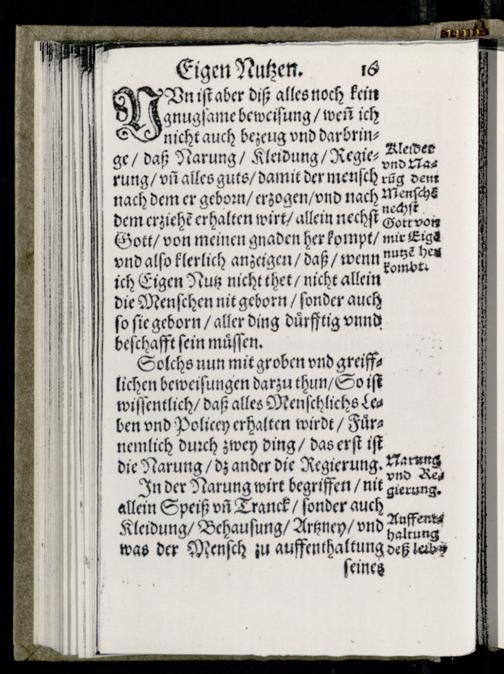 Eigen Nutzen. 16
NUn ist aber diß alles noch kein
gnugsame beweisung / weñ ich
nicht auch bezeug vnd darbrin-
ge / daß Narung / Kleidung / Regie-
rung / vñ alles guts / damit der mensch
nach dem er geborn / erzogen / vnd nach
dem erziehẽ erhalten wirt / allein nechst
Gott / von meinen gnaden her kompt /
vnd also klerlich anzeigen / daß / wenn
ich Eigen Nutz nicht thet / nicht allein
die Menschen nit geborn / sonder auch
so sie geborn / aller ding dürfftig vnnd
beschafft sein müssen.
Solchs nun mit groben vnd greiff-
lichen beweisungen darzu thun / So ist
wissentlich / daß alles Menschlichs Le-
ben vnd Policey erhalten wirdt / Für-
nemlich durch zwey ding / das erst ist
die Narung / dz ander die Regierung.
In der Narung wirt begriffen / nit
allein Speiß vñ Tranck / sonder auch
Kleidung / Behausung / Artzney / vnd
was der Mensch zu auffenthaltung
seines
Kleider
vnd Na-
rũg dem
Menschẽ
nechst
Gott von
mir Eigẽ
nutzẽ her
kombt.
Narung
vnd Re-
gierung.
Auffent-
haltung
deß leibs